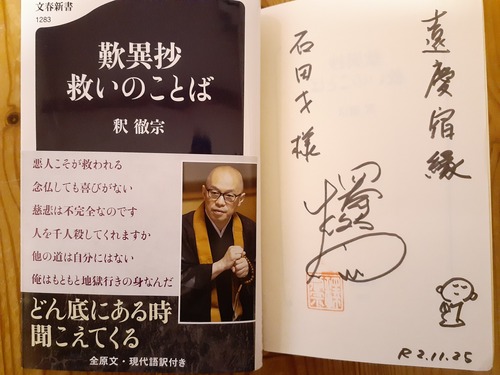 文春新書
1283
歎異抄
救いのことば
釈 徹宗
悪人こそが救われる
念仏しても喜びがない
慈悲は不完全なのです
人を千人殺してくれますか
他の道は自分にはない
俺はもともと地獄行きの身なんだ
どん底にある時
聞こえてくる
全原文・現代語訳付き
遠慶宿縁
石田才様
R2.11.25